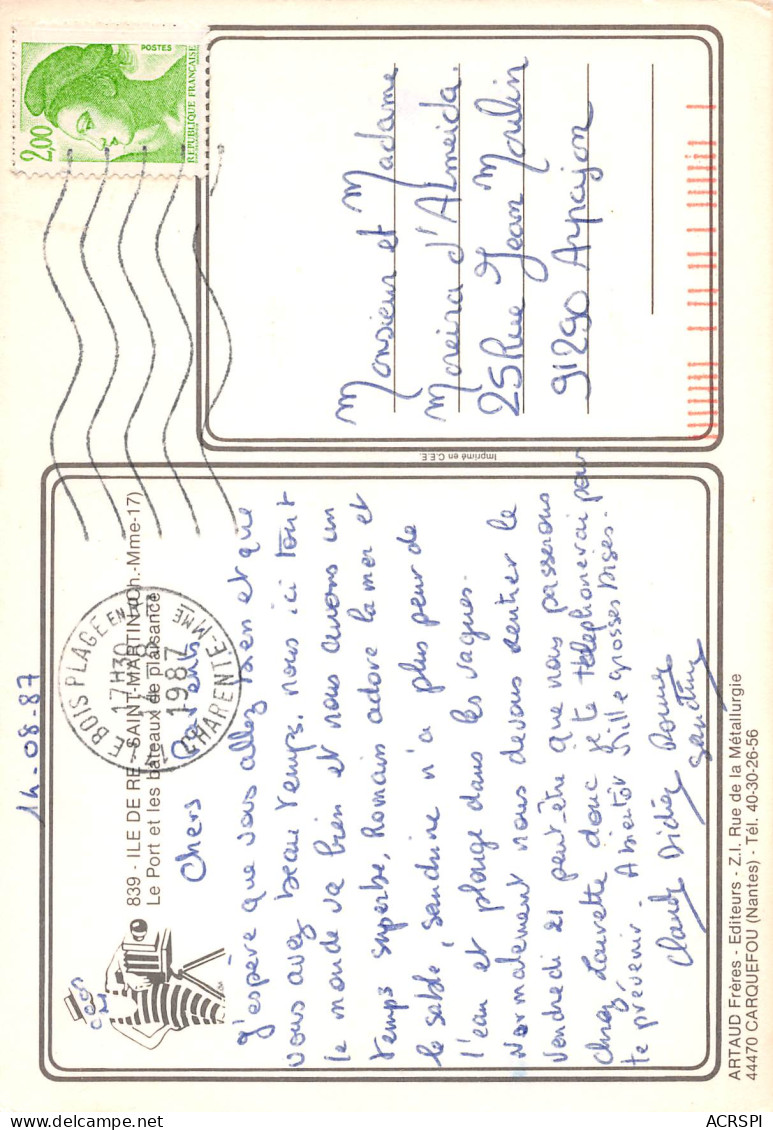 14-08-87
839 - ILE DE RE - SAINT-MARTIN (Ch.-Mme-17)
Le Port et les bateaux de plaisance
LE BOIS PLAGE EN RE
17H30
1987
CHARENTE-MME
Chers Parents
J'espère que vous allez bien et que
vous avez beau temps. nous ici tout
le monde va bien et nous avons un
temps superbe, Romain adore la mer et
le sable, Sandrine n'a plus peur de
l'eau et plonge dans les vagues.
Normalement nous devons rentrer le
Vendredi 21 peut-être que nous passerons
chez Laurette donc je te téléphonerai pour
te prévenir. A bientôt Mille grosses Bises.
Claude Didier Romain
Sandrine
Imprimé en C.E.E.
ARTAUD Frères - Editeurs - Z.I. Rue de la Métallurgie
44470 CARQUEFOU (Nantes) - Tél. 40-30-26-56
2,00
POSTES
REPUBLIQUE FRANÇAISE
Monsieur et Madame
Moreira d'Almeida
25 Rue Jean Moulin
91290 Arpajon
ACRSPI